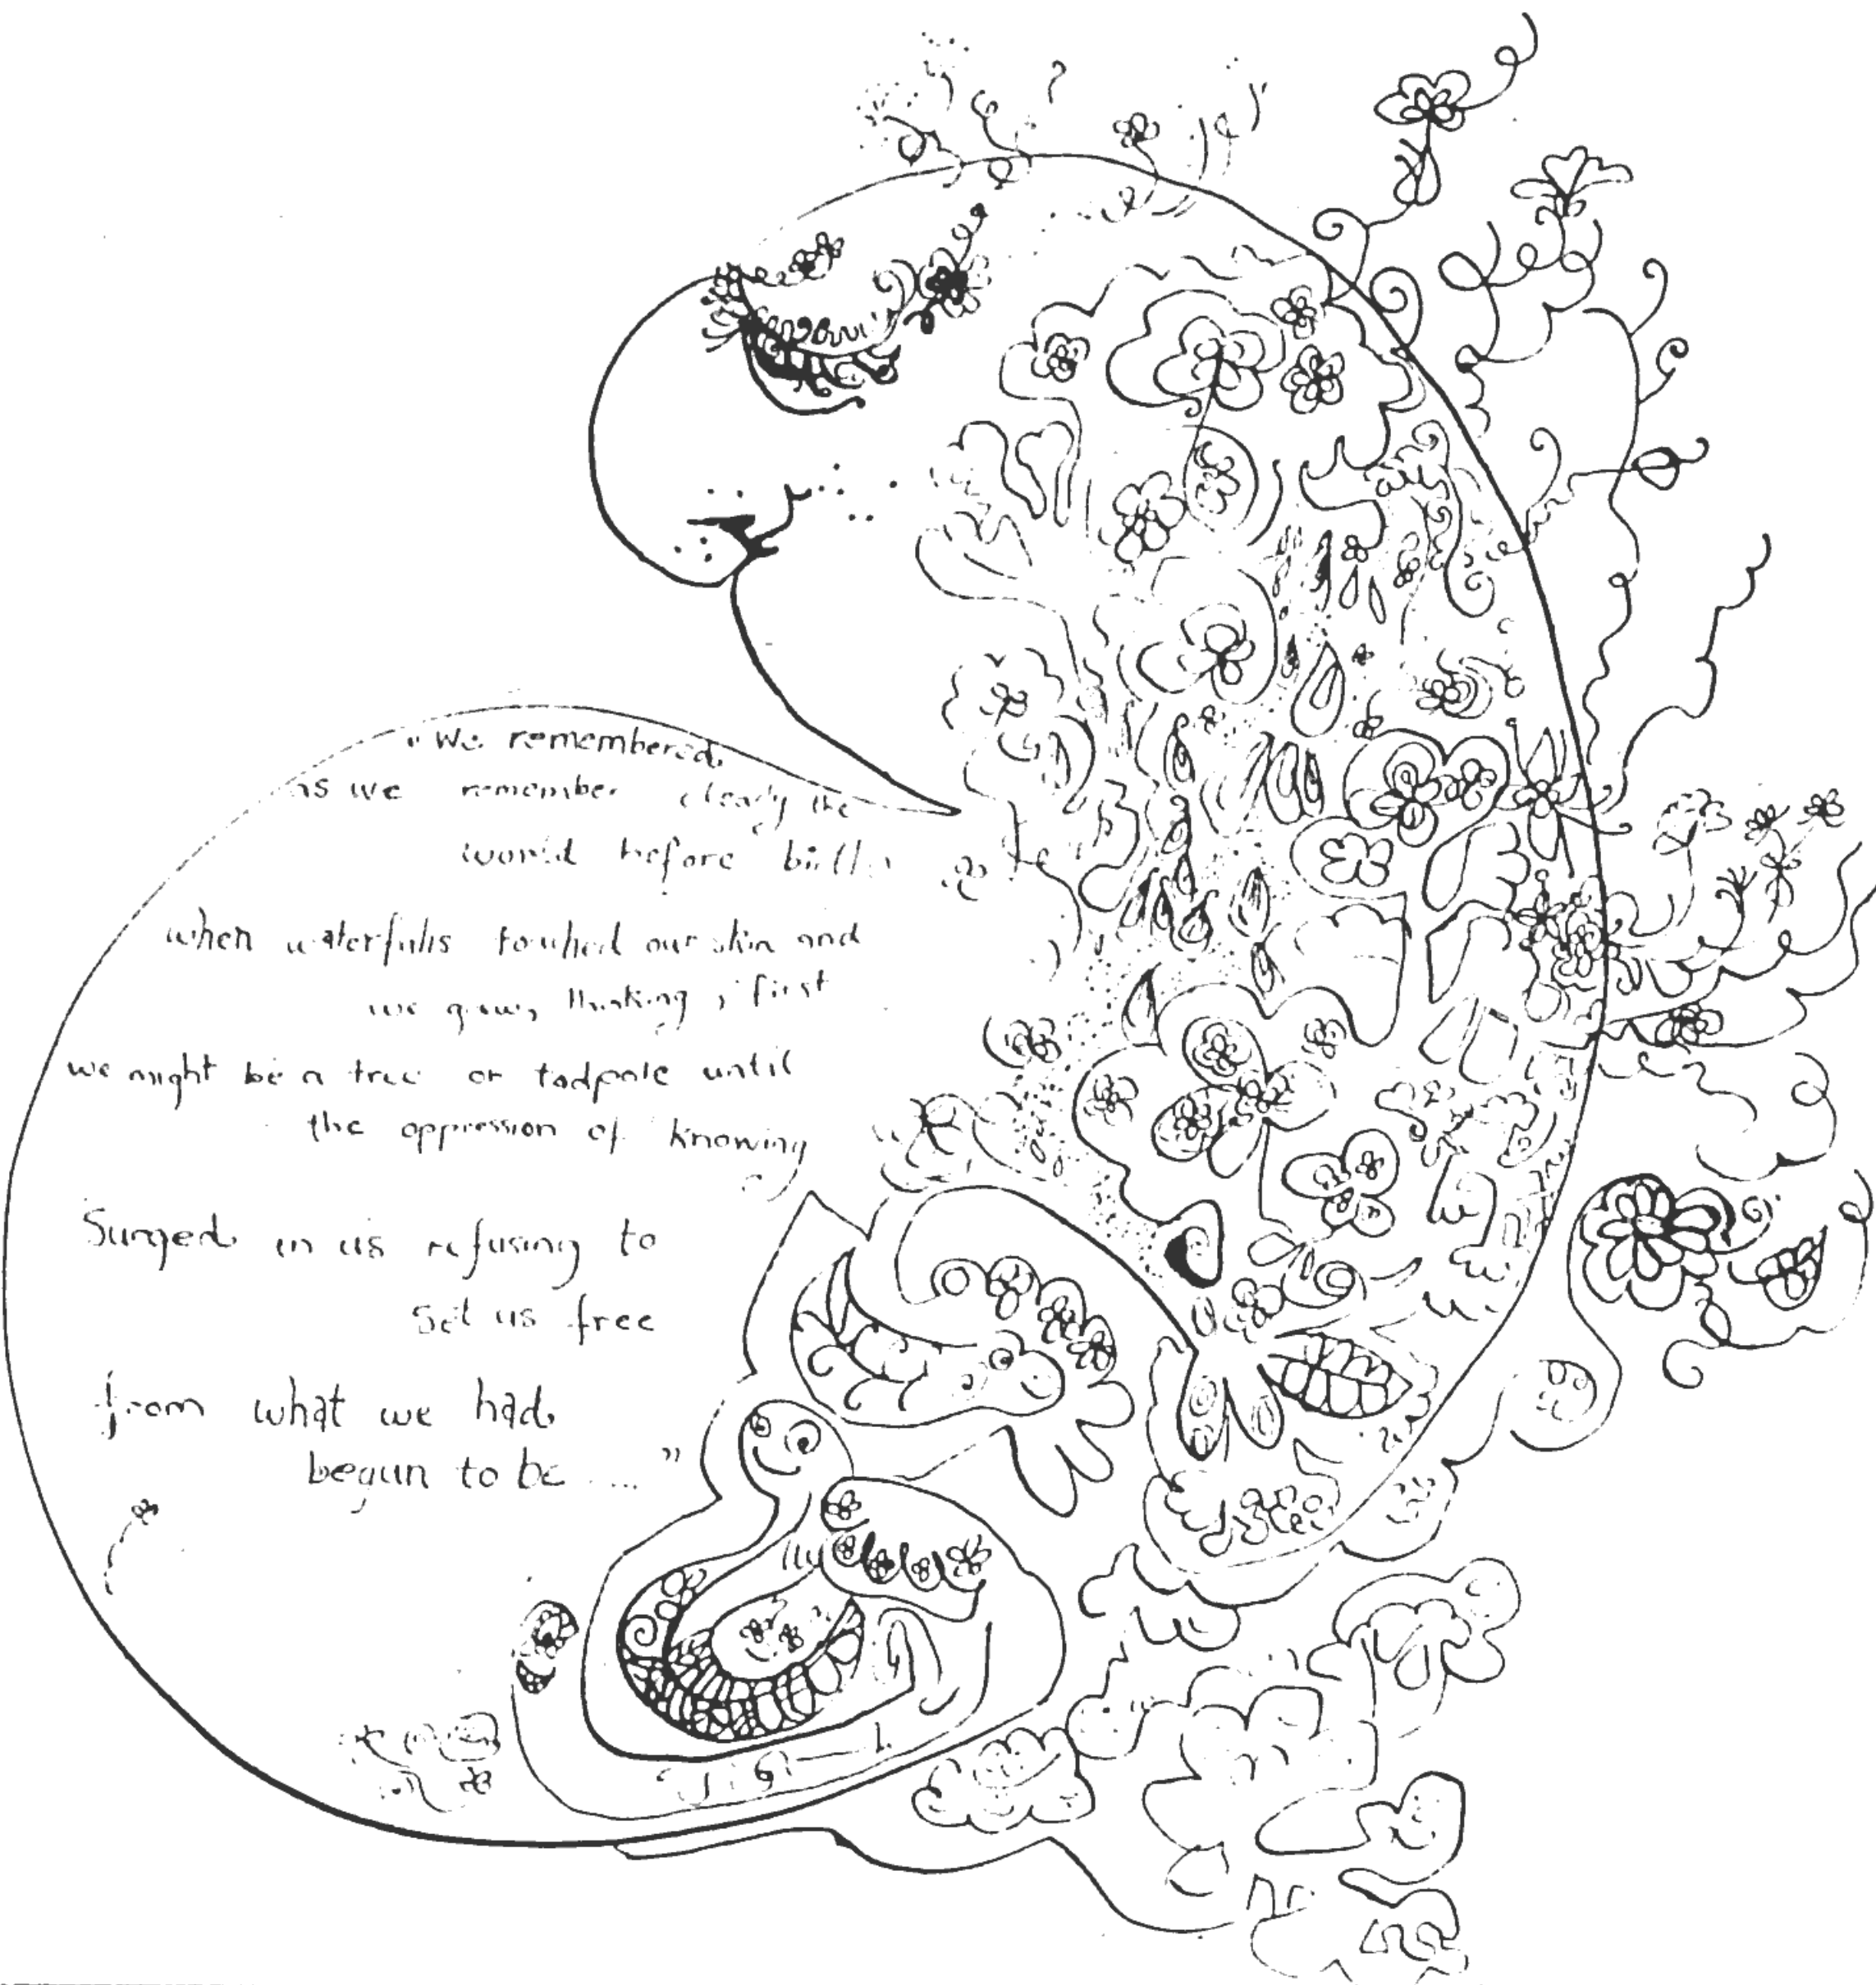 "We remembered
as we remember clearly the
world before birth
when waterfalls touched our skin and
we grew, thinking, first
we might be a tree or tadpole until
the oppression of knowing
Surged in us refusing to
Set us free
from what we had
begun to be .... "